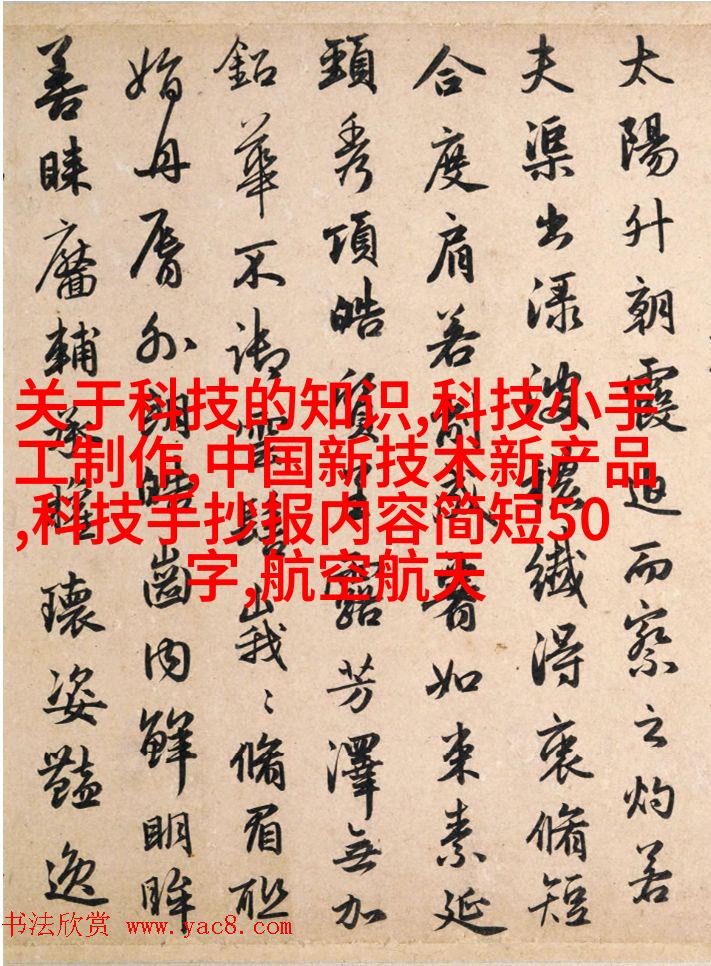 太陽升朝霞迫而察之灼若
夫渠出渌波襛纖得衷脩短
合度肩若削成如束素延
頸秀項皓質呈露芳澤無加
鉛華不御雲髻峩〻脩眉聯
娟丹脣外朗皓齒内鮮明眸
善睞靨輔承權瓌姿豔逸
关于科技的知识,科技小手
工制作,中国新技术新产品
,科技手抄报内容简短50
字,航空航天
书法欣赏 www.yac8.com